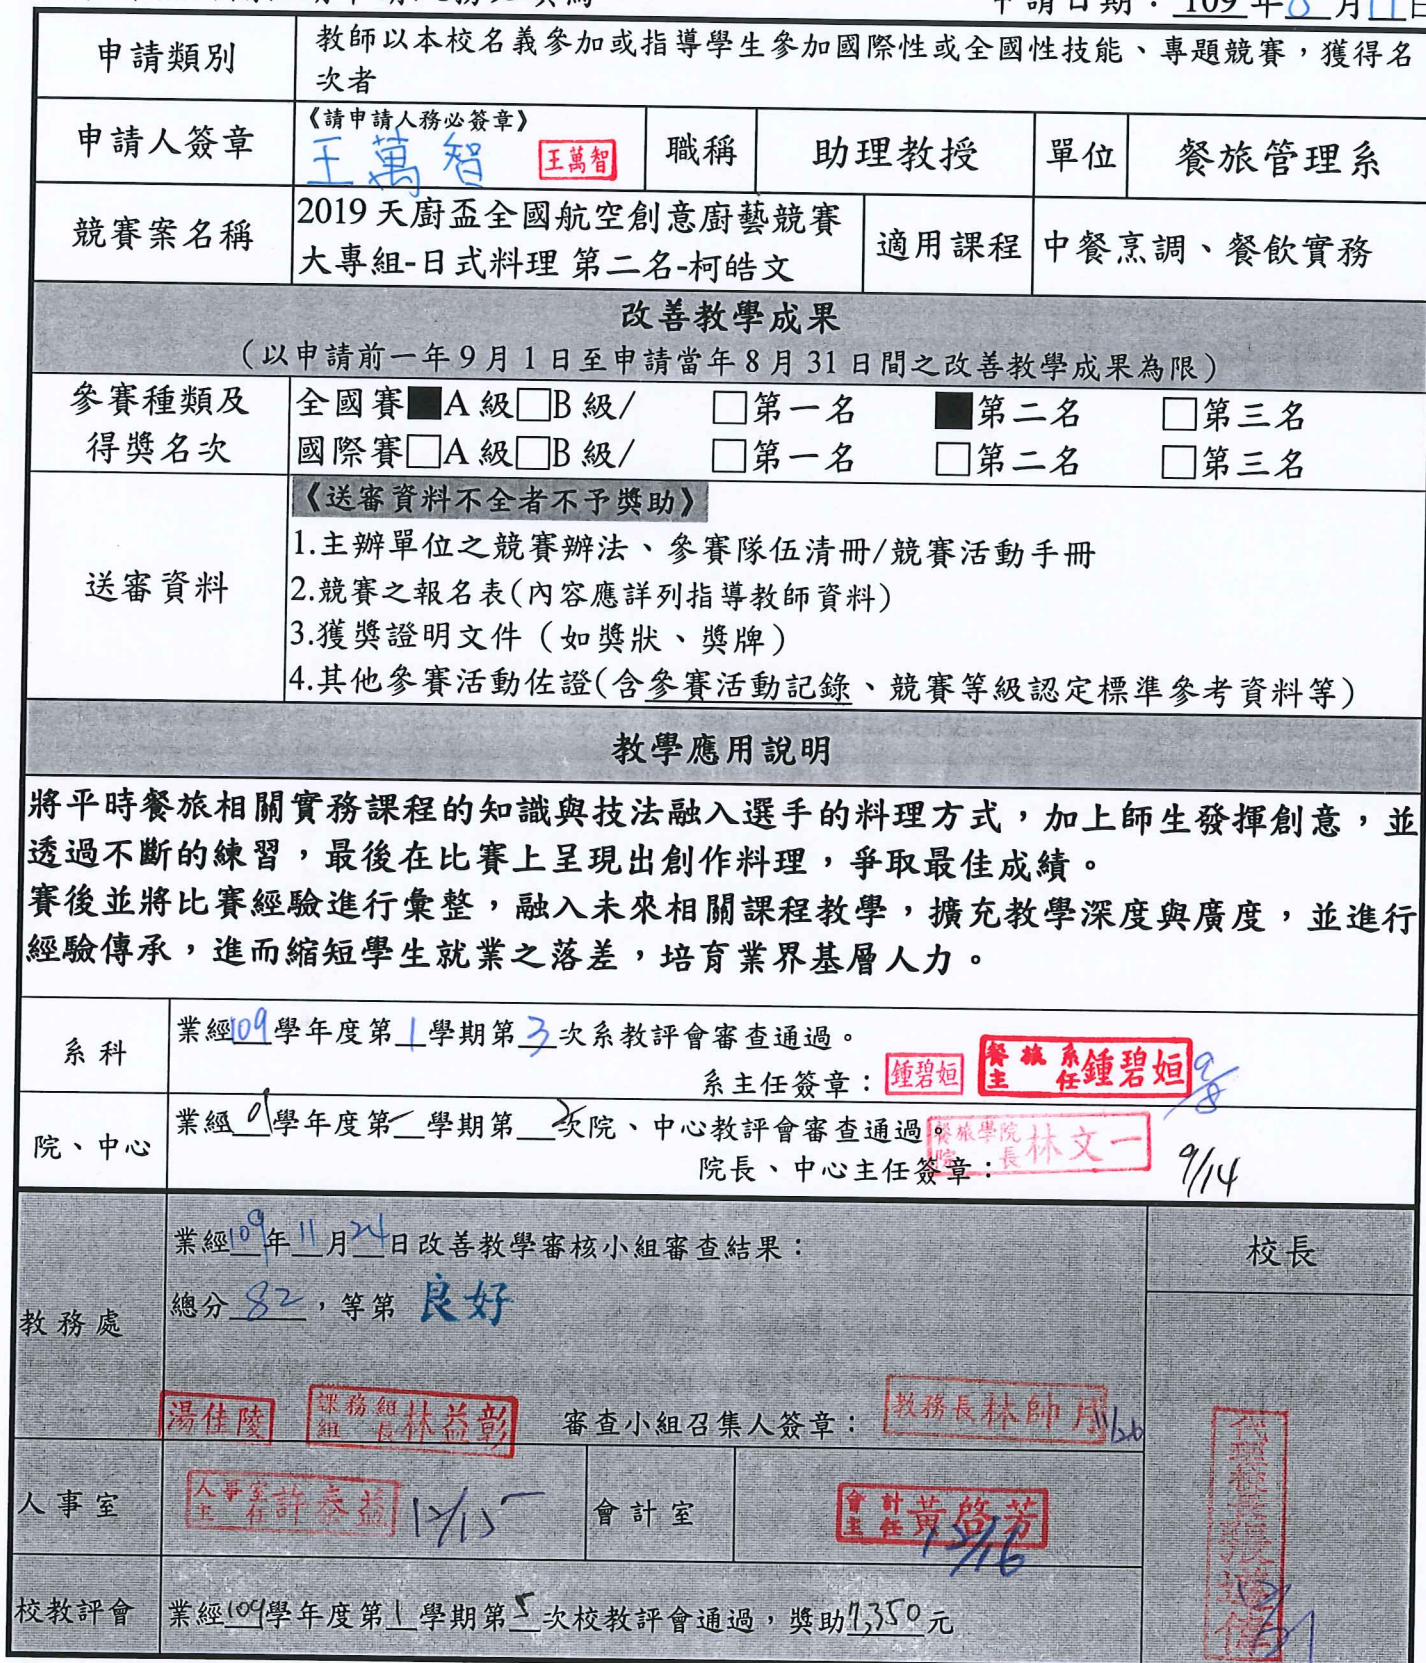 申請日期：109年8月11日
申請類別
教師以本校名義參加或指導學生參加國際性或全國性技能、專題競賽，獲得名
次者
申請人簽章
《請申請人務必簽章》
王萬智 王萬智
職稱
助理教授
單位
餐旅管理系
競賽案名稱
2019天廚盃全國航空創意廚藝競賽
大專組-日式料理 第二名-柯皓文
適用課程
中餐烹調、餐飲實務
改善教學成果
（以申請前一年9月1日至申請當年8月31日間之改善教學成果為限）
參賽種類及
得獎名次
全國賽■A級□B級/ □第一名 ■第二名 □第三名
國際賽□A級□B級/ □第一名 □第二名 □第三名
送審資料
《送審資料不全者不予獎助》
1.主辦單位之競賽辦法、參賽隊伍清冊/競賽活動手冊
2.競賽之報名表(內容應詳列指導教師資料)
3.獲獎證明文件（如獎狀、獎牌）
4.其他參賽活動佐證(含參賽活動記錄、競賽等級認定標準參考資料等)
教學應用說明
將平時餐旅相關實務課程的知識與技法融入選手的料理方式，加上師生發揮創意，並
透過不斷的練習，最後在比賽上呈現出創作料理，爭取最佳成績。
賽後並將比賽經驗進行彙整，融入未來相關課程教學，擴充教學深度與廣度，並進行
經驗傳承，進而縮短學生就業之落差，培育業界基層人力。
系科
業經109學年度第1學期第3次系教評會審查通過。
系主任簽章：鍾碧姮 餐旅系主任鍾碧姮 9/8
院、中心
業經 學年度第 學期第 次院、中心教評會審查通過。
院長、中心主任簽章：餐旅學院院長林文一 9/14
教務處
業經109年11月24日改善教學審核小組審查結果：
總分82，等第 良好
湯佳陵 課務組組長林益彰 審查小組召集人簽章：教務長林帥月 11/26
校長
代理校長張
人事室
人事室主任許泰益 12/15
會計室
會計主任黃啓芳 12/16
校教評會
業經109學年度第1學期第5次校教評會通過，獎助7,350元